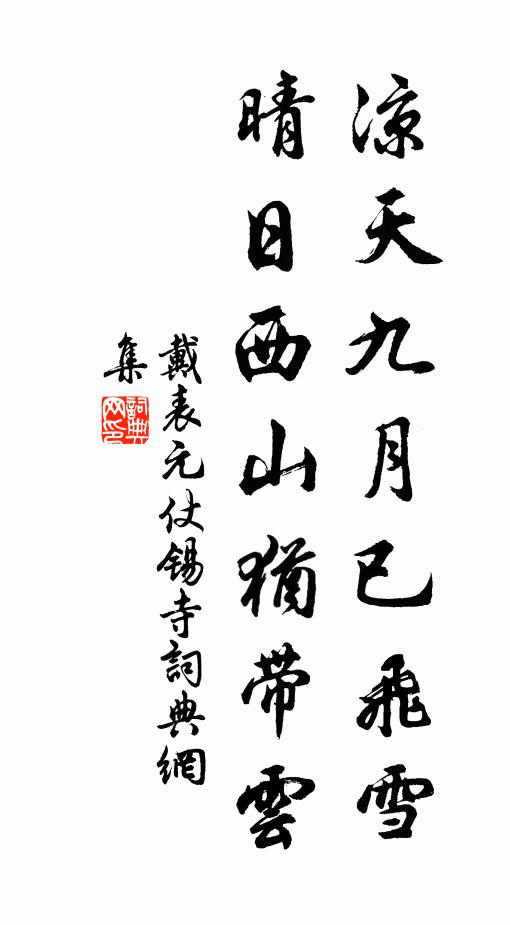 凉天九月已飛雪
晴日西山猶带雲
戴表元仗錫寺詞典網
集
詞典网印